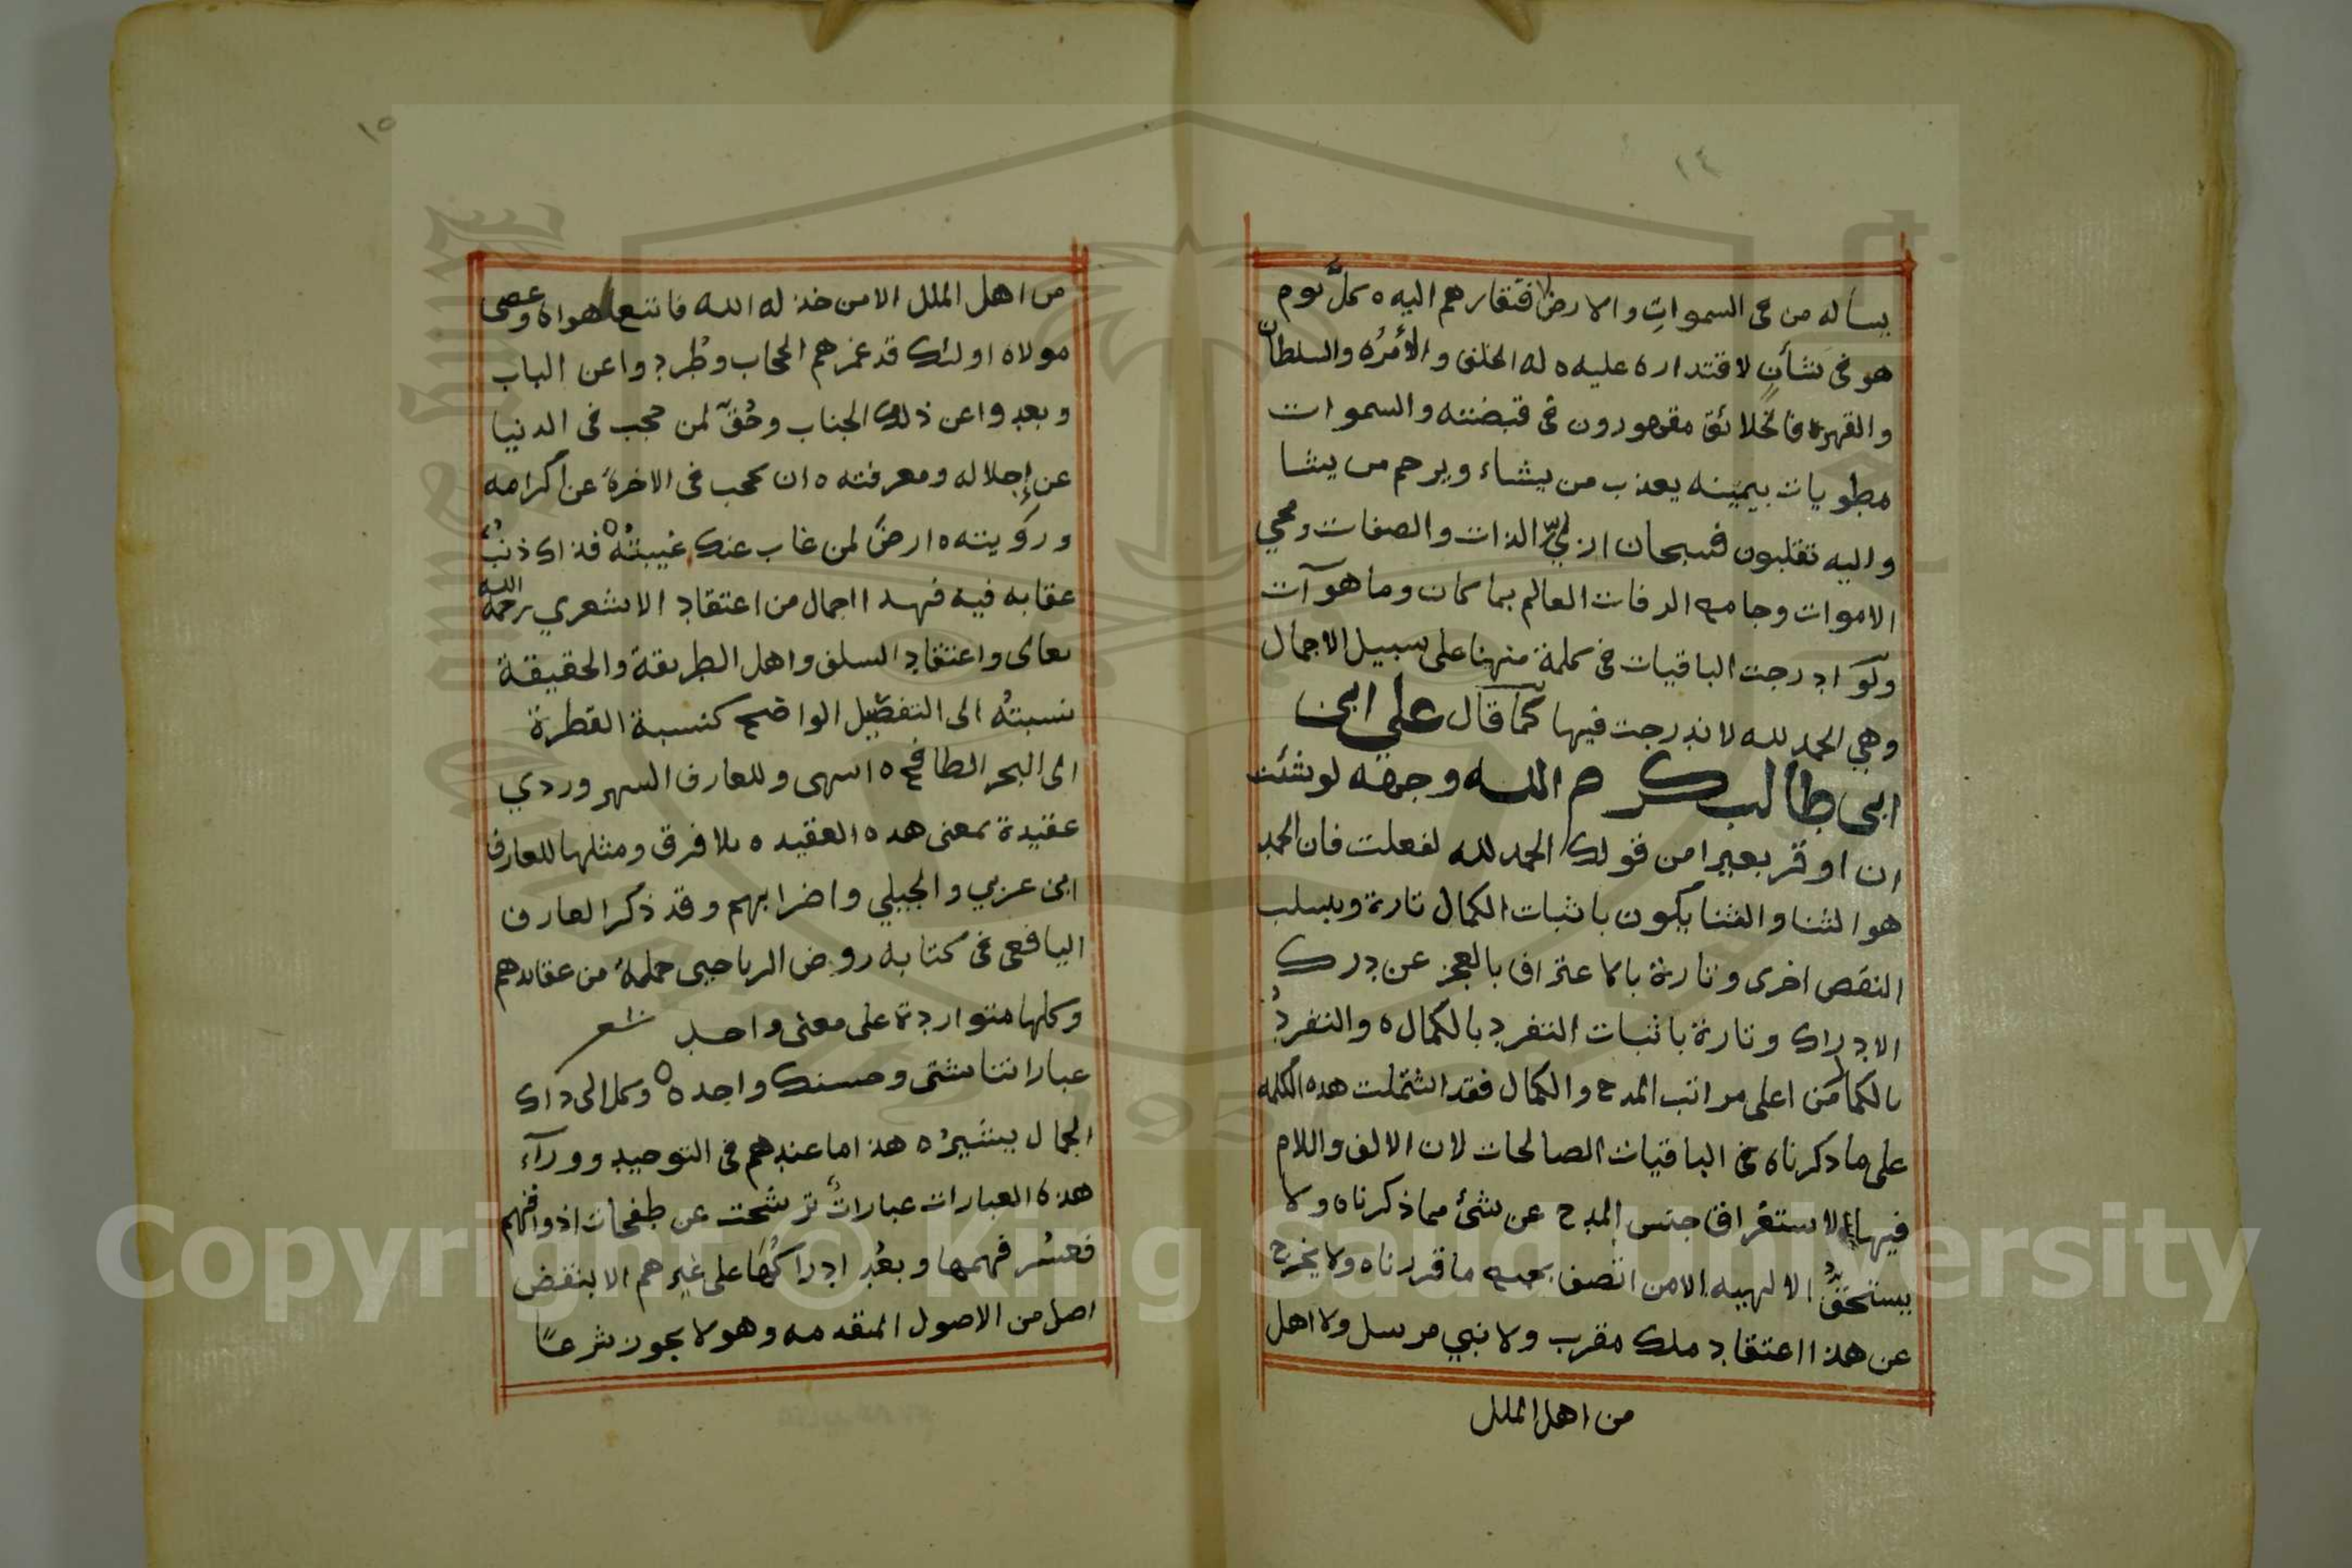 ١٤
يسأله من في السموات والارض لافتقارهم اليه ه كلَّ يوم
هو في شأنٍ لاقتداره عليه ه له الخلق والأمرُه والسلطان
والقهره فالخلائق مقهورون في قبضته والسموات
مطويات بيمينه يعذب من يشاء ويرحم من يشا
واليه تقلبون فسبحان ازليّ الذات والصفات ومحي
الاموات وجامع الرفات العالم بما كان وما هو آت
ولَو ادرجت الباقيات في كلمة منها على سبيل الاجمال
وهي الحمد لله لاندرجت فيها كما قال علي ابن
ابي طالب كرم الله وجهه لو شئت
ان اوقر بعيرا من قولك الحمد لله لفعلت فان الحمد
هو الثنا والثنا يكون باثبات الكمال تارة وبسلب
النقص اخرى وتارة بالاعتراف بالعجز عن درك
الادراك وتارة باثبات التفرد بالكمال ه والتفردُ
بالكمال من اعلى مراتب المدح والكمال فقد اشتملت هده الكلمه
على ما دكرناه في الباقيات الصالحات لان الالف واللام
فيها لاستغراق جنس المدح عن شئ مما ذكرناه ولا
يستحقُّ الالهيه الا من اتصف بجميع ما قررناه ولا يخرج
عن هذا اعتقاد ملك مقرب ولا نبي مرسل ولا اهل
من اهل الملل
١٥
من اهل الملل الا من خذله الله فاتبع هواه وعصى
مولاه اولئك قد غمرهم الحجاب وطُردوا عن الباب
وبعدوا عن ذلك الجناب وحُقّ لمن حجب في الدنيا
عن إجلاله ومعرفته ه ان يحجب في الاخرة عن اكرامه
ورؤيته ه ارضَ لمن غاب عنك غيبتُه ه فذاك ذنبٌ
عقابه فيه فهدا اجمال من اعتقاد الاشعري رحمه الله
تعالى واعتقاد السلف واهل الطريقة والحقيقة
نسبتُه الى التفصيل الواضح كنسبة القطرة
الى البحر الطافح ه انتهى وللعارف السهروردي
عقيدة بمعنى هده العقيده بلا فرق ومثلها للعارف
ابن عربي والجيلي واضرابهم وقد ذكر العارف
اليافعي في كتابه روض الرياحين جملة من عقايدهم
وكلها متواردة على معنى واحد شعر
عباراتنا شتى وحسنك واحد ه وكل الى داك
الجمال يشيرُ ه هذا ما عندهم في التوحيد ووراء
هذه العبارات عباراتٌ ترشحت عن طفحات اذواقهم
فعسُر فهمها وبعُد ادراكُها على غيرهم الا بنقض
اصل من الاصول المتقدمه وهو لا يجوز شرعًا
Copyright © King Saud University